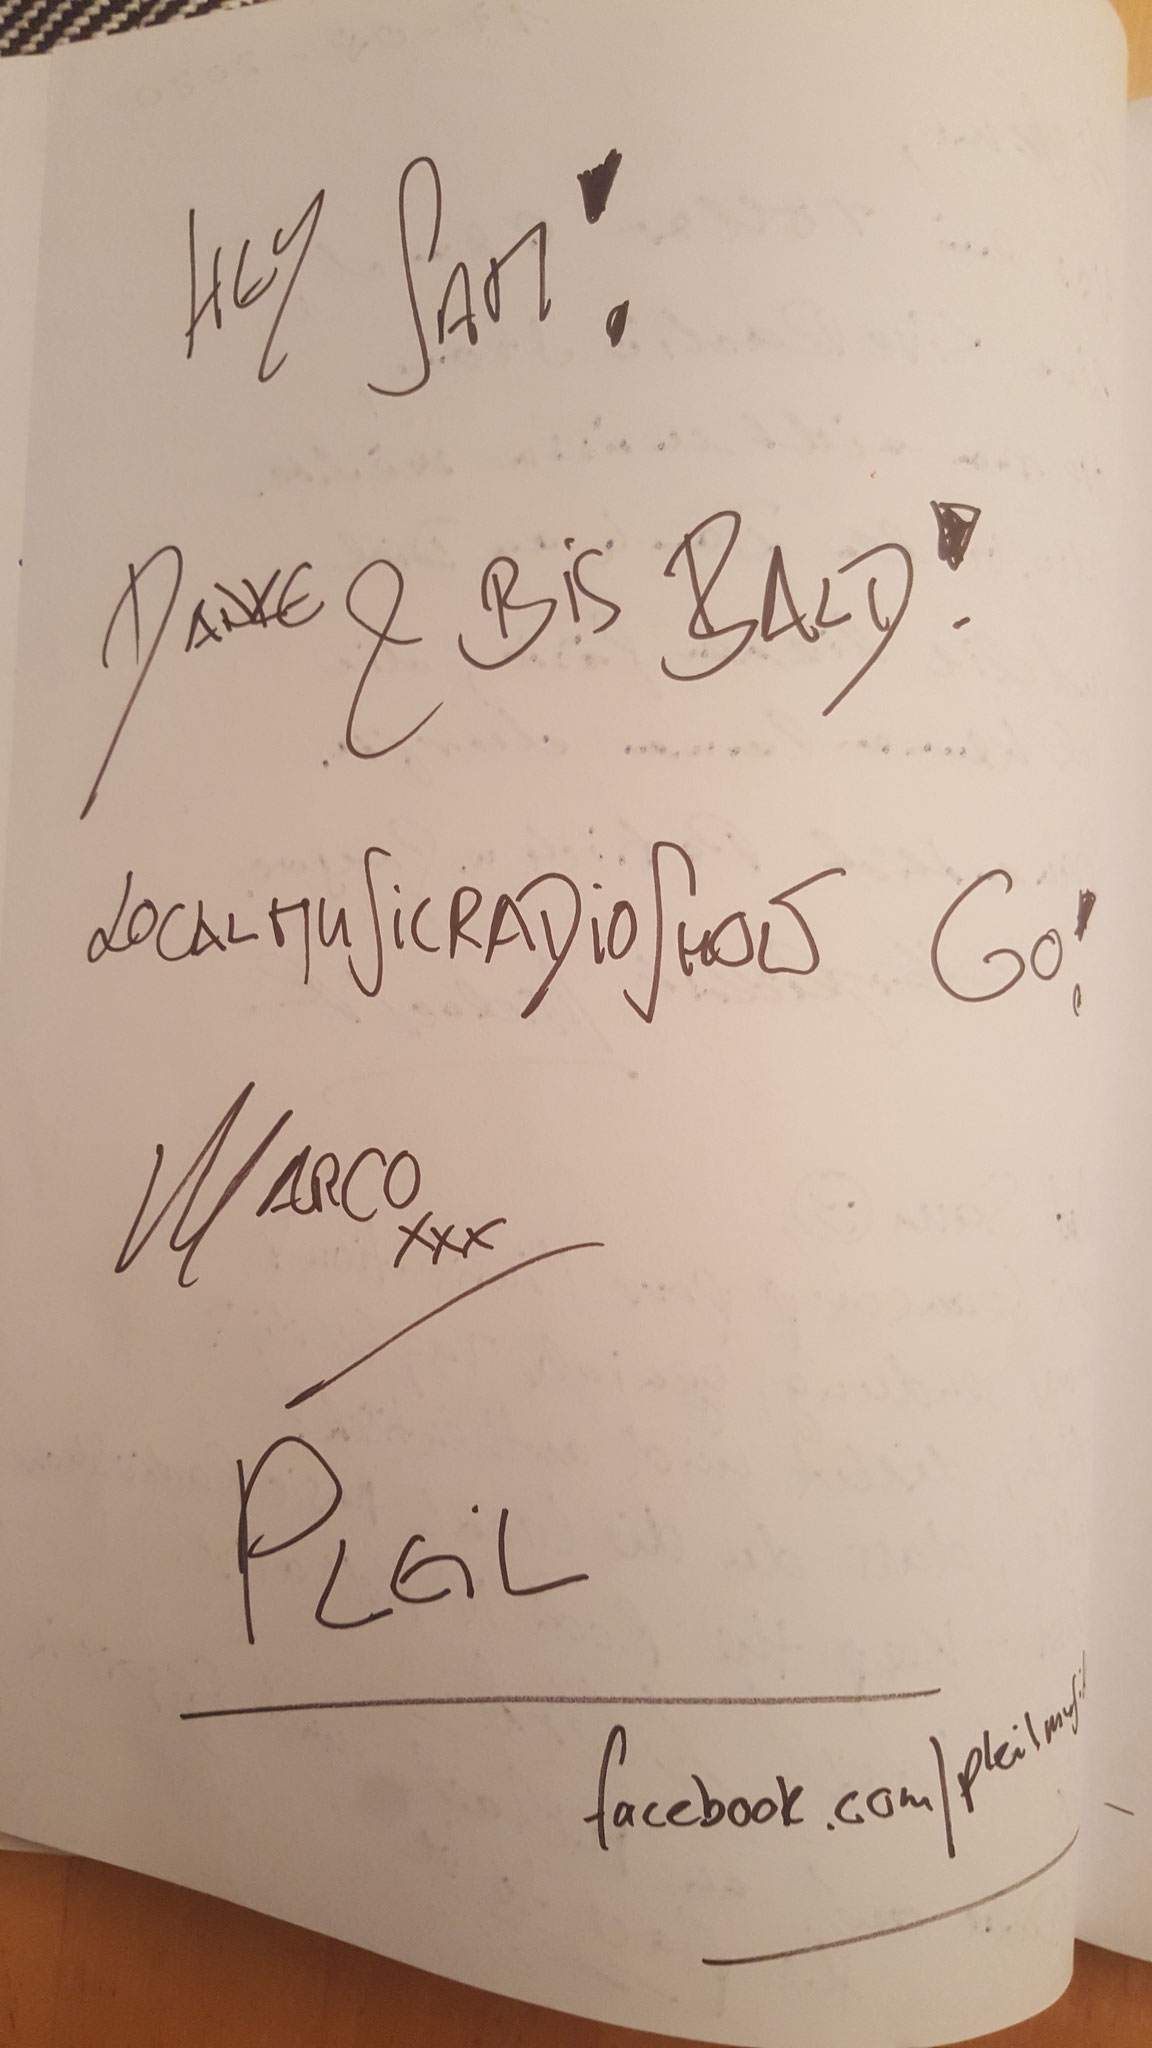 HEY SAM!
DANKE & BiS BALD!
LOCALMUSiCRADiOSHOW GO!
MARCO
xxx
PLEiL
facebook.com/pleilmusic